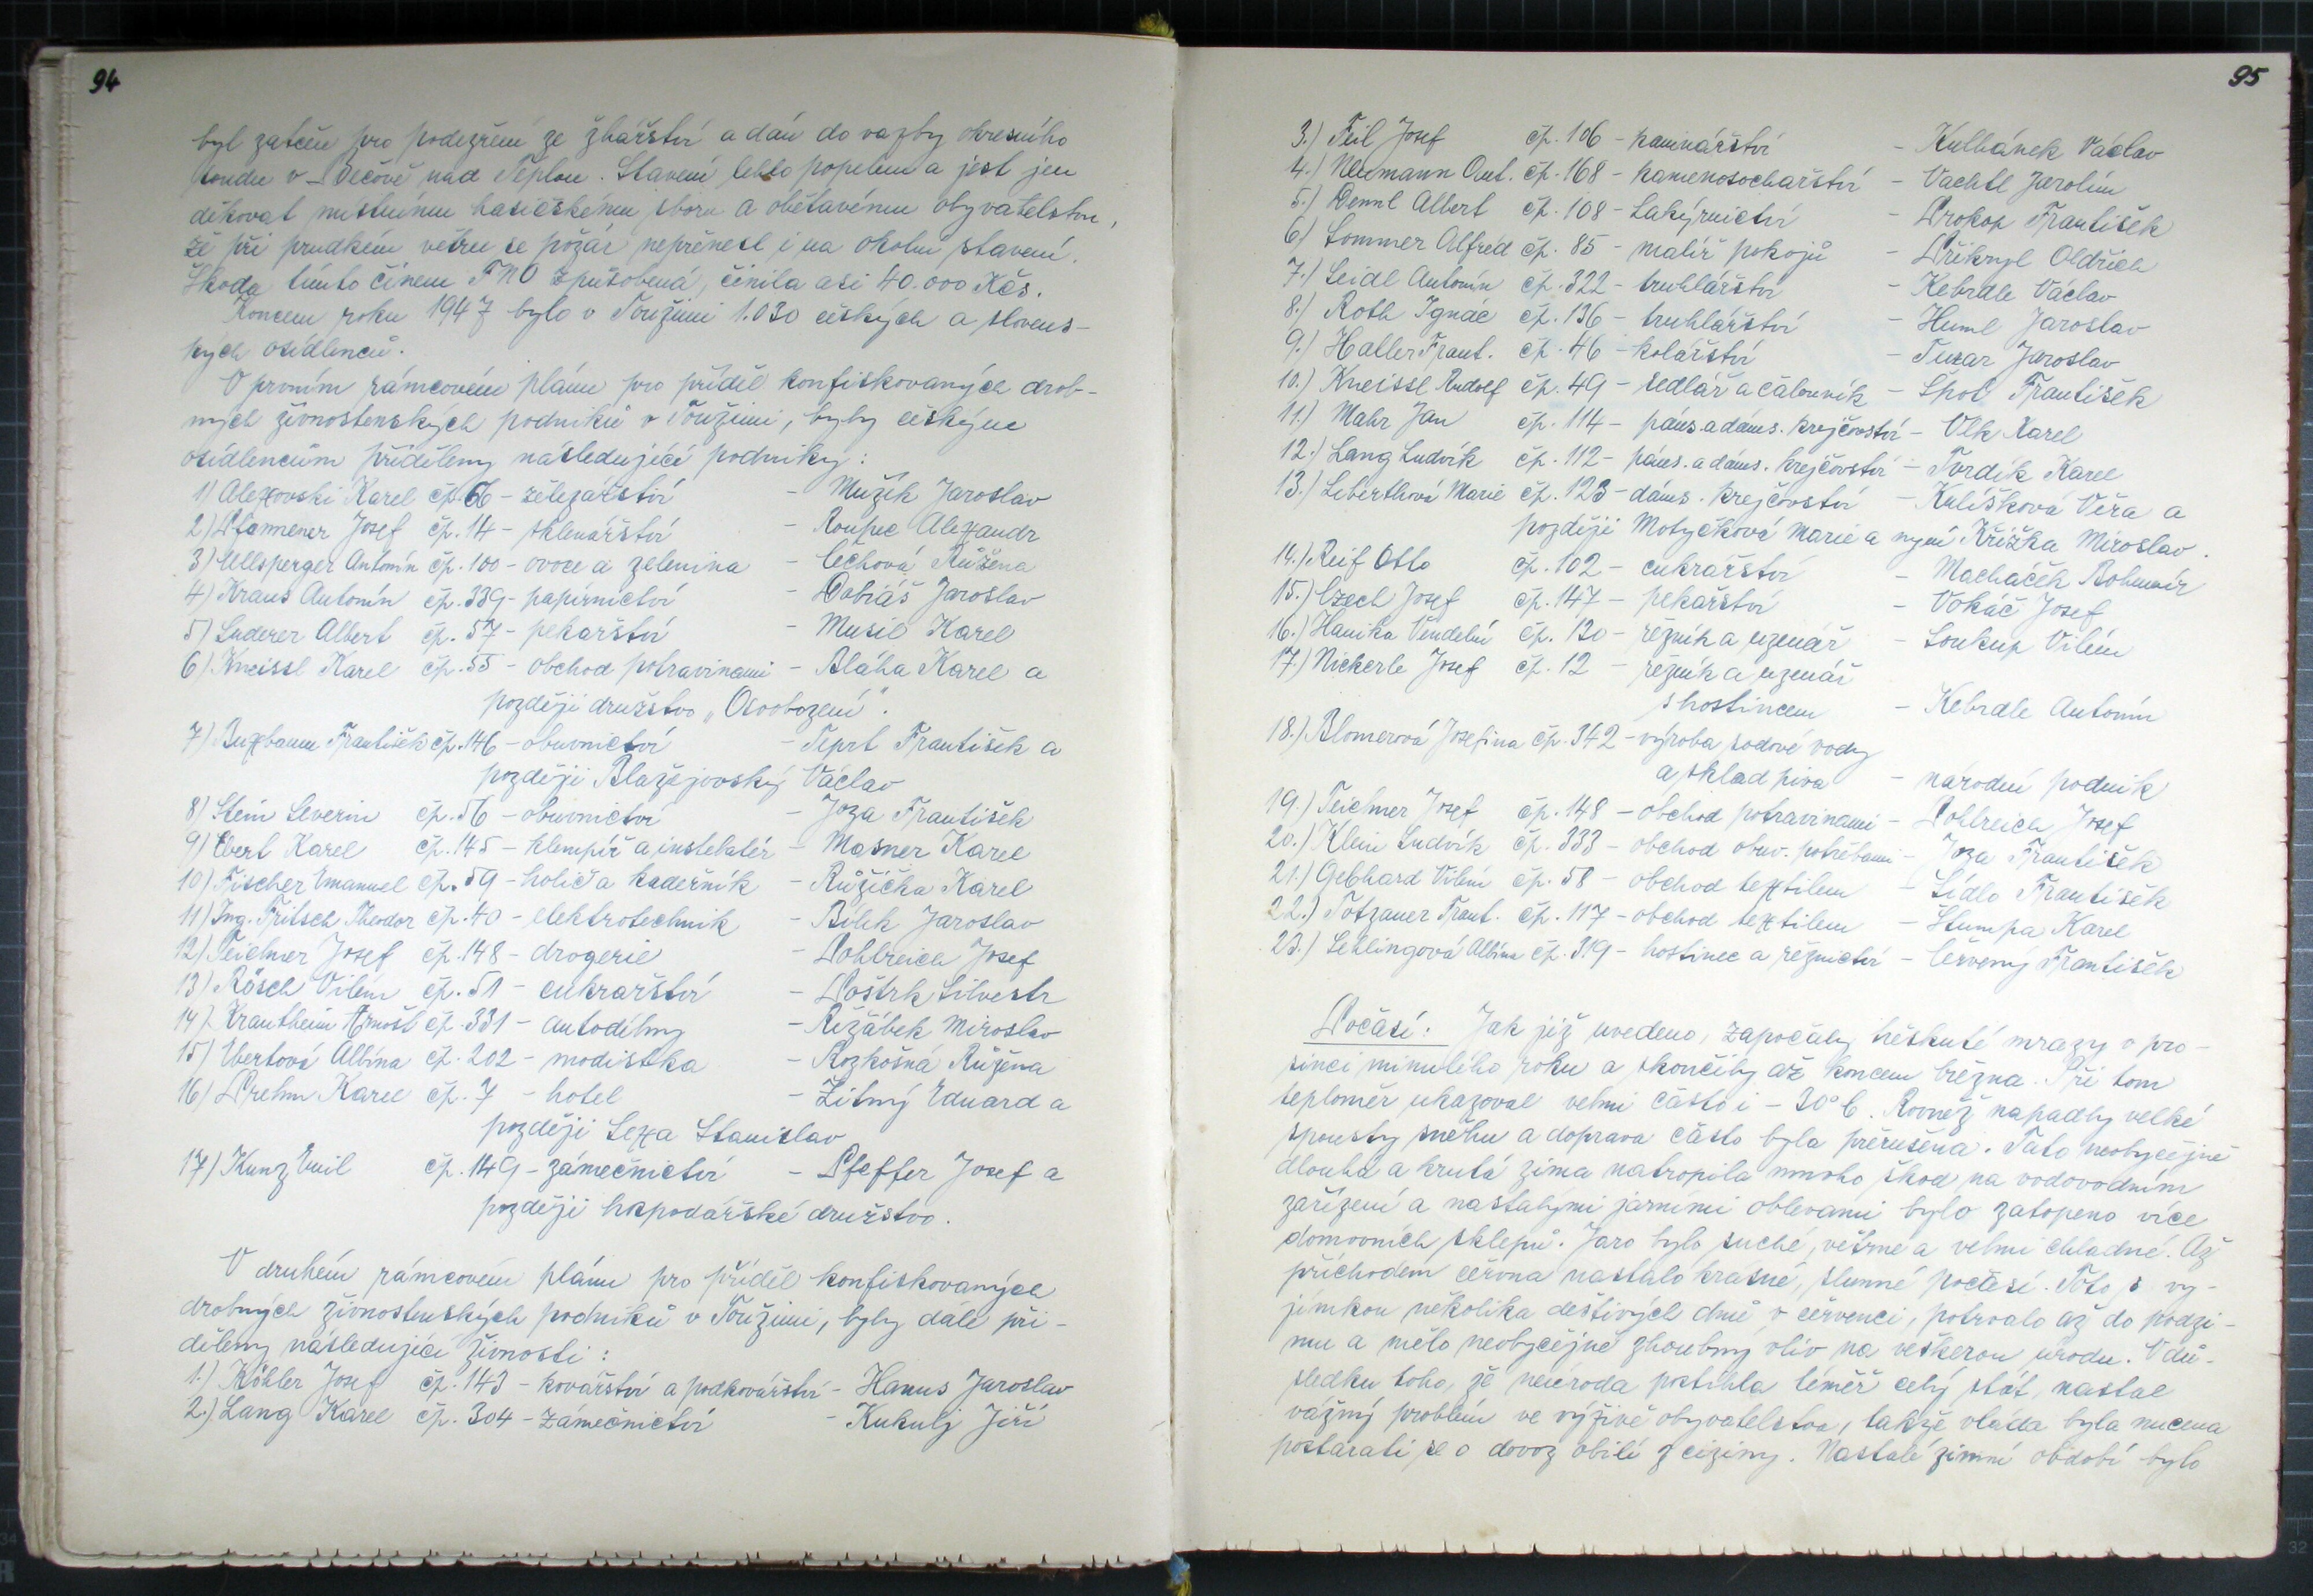 94
byl zatčen pro podezření ze žhářství a dán do vazby okresního
soudu v Bečově nad Teplou. Stavení lehlo popelem a jest jen
děkovat místnímu hasičskému sboru a obětavému obyvatelstvu,
že při prudkém větru se požár nepřenesl i na okolní stavení.
Škoda tímto činem způsobená, činila asi 40.000 Kčs.
Koncem roku 1947 bylo v Toužimi 1.030 českých a sloven-
ských osídlenců.
V prvním rámcovém plánu pro příděl konfiskovaných drob-
ných živnostenských podniků v Toužimi, byly českým
osídlencům přiděleny následující podniky:
1) Alexovski Karel čp. 66 - železářství - Mužík Jaroslav
2) Pfannener Josef čp. 14 - sklenářství - Roupec Alexandr
3) Ullsperger Antonín čp. 100 - ovoce a zelenina - Čechová Růžena
4) Kraus Antonín čp. 339 - papírnictví - Dobiáš Jaroslav
5) Luderer Albert čp. 57 - pekařství - Musil Karel
6) Kneissl Karel čp. 55 - obchod potravinami - Bláha Karel a
později družstvo „Osvobození".
7) Buxbaum František čp. 146 - obuvnictví - Teprt František a
později Blažejovský Václav
8) Stein Severin čp. 56 - obuvnictví - Joza František
9) Ebert Karel čp. 145 - klempíř a instalatér - Masner Karel
10) Fischer Emanuel čp. 59 - holič a kadeřník - Růžička Karel
11) Ing. Fritsch Theodor čp. 40 - elektrotechnik - Bílek Jaroslav
12) Teichner Josef čp. 148 - drogerie - Pohlreich Josef
13) Rösch Vilém čp. 51 - cukrářství - Poštrk Silvestr
14) Krautheim Arnošt čp. 331 - autodílny - Režábek Miroslav
15) Ebertová Albína čp. 202 - modistka - Rozkošná Růžena
16) Prehm Karel čp. 7 - hotel - Žitný Eduard a
později Lexa Stanislav
17) Kunz Emil čp. 149 - zámečnictví - Pfeffer Josef a
později hospodářské družstvo.
V druhém rámcovém plánu pro příděl konfiskovaných
drobných živnostenských podniků v Toužimi, byly dále při-
děleny následující živnosti:
1.) Köhler Josef čp. 143 - kovářství a podkovářství - Hanus Jaroslav
2.) Lang Karel čp. 304 - zámečnictví - Kukulj Jiří
95
3.) Feil Josef čp. 106 - kominářství - Kulhánek Václav
4.) Neumann Ant. čp. 168 - kamenosochařství - Vachtl Jarolím
5.) Dennl Albert čp. 108 - Lakýrnictví - Prokop František
6) Sommer Alfréd čp. 85 - malíř pokojů - Přikryl Oldřich
7.) Seidl Antonín čp. 322 - truhlářství - Kebrdle Václav
8.) Roth Ignác čp. 136 - truhlářství - Huml Jaroslav
9.) Haller Frant. čp. 46 - kolářství - Tuzar Jaroslav
10.) Kneissl Rudolf čp. 49 - sedlář a čalouník - Špot František
11.) Mahr Jan čp. 114 - páns. a dáms. krejčovství - Vlk Karel
12.) Lang Ludvík čp. 112 - páns. a dáms. krejčovství - Tvrdík Karel
13.) Liberthová Marie čp. 123 - dáms. krejčovství - Kulíšková Věra a
později Motyčková Marie a nyní Křížka Miroslav.
14.) Reif Otto čp. 102 - cukrářství - Macháček Bohumír
15.) Czech Josef čp. 147 - pekařství - Vokáč Josef
16.) Hanika Vendelín čp. 120 - řezník a uzenář - Soukup Vilém
17.) Nickerle Josef čp. 12 - řezník a uzenář
s hostincem - Kebrdle Antonín
18.) Blomerová Josefina čp. 342 - výroba sodové vody
a sklad piva - národní podnik
19.) Teichner Josef čp. 148 - obchod potravinami - Pohlreich Josef
20.) Klein Ludvík čp. 333 - obchod obuv. potřebami - Joza František
21.) Gebhard Vilém čp. 58 - obchod textilem - Sídlo František
22.) Totzauer Frant. čp. 117 - obchod textilem - Štumpa Karel
23.) Sehlingová Albína čp. 319 - hostinec a řeznictví - Červený František
Počasí: Jak již uvedeno, započaly třeskuté mrazy v pro-
sinci minulého roku a skončily až koncem března. Při tom
teploměr ukazoval velmi často i - 30° C. Rovněž napadly velké
spousty sněhu a doprava často byla přerušena. Tato neobyčejně
dlouhá a krutá zima natropila mnoho škod na vodovodním
zařízení a nastalými jarními oblevami bylo zatopeno více
domovních sklepů. Jaro bylo suché, větrné a velmi chladné. Až
příchodem června nastalo krásné, slunné počasí. Toto s vy-
jímkou několika deštivých dnů v červenci, potrvalo až do podzi-
mu a mělo neobyčejně zhoubný vliv na veškerou úrodu. V dů-
sledku toho, že neúroda postihla téměř celý stát, nastal
vážný problém ve výživě obyvatelstva, takže vláda byla nucena
postarati se o dovoz obilí z ciziny. Nastalé zimní období bylo